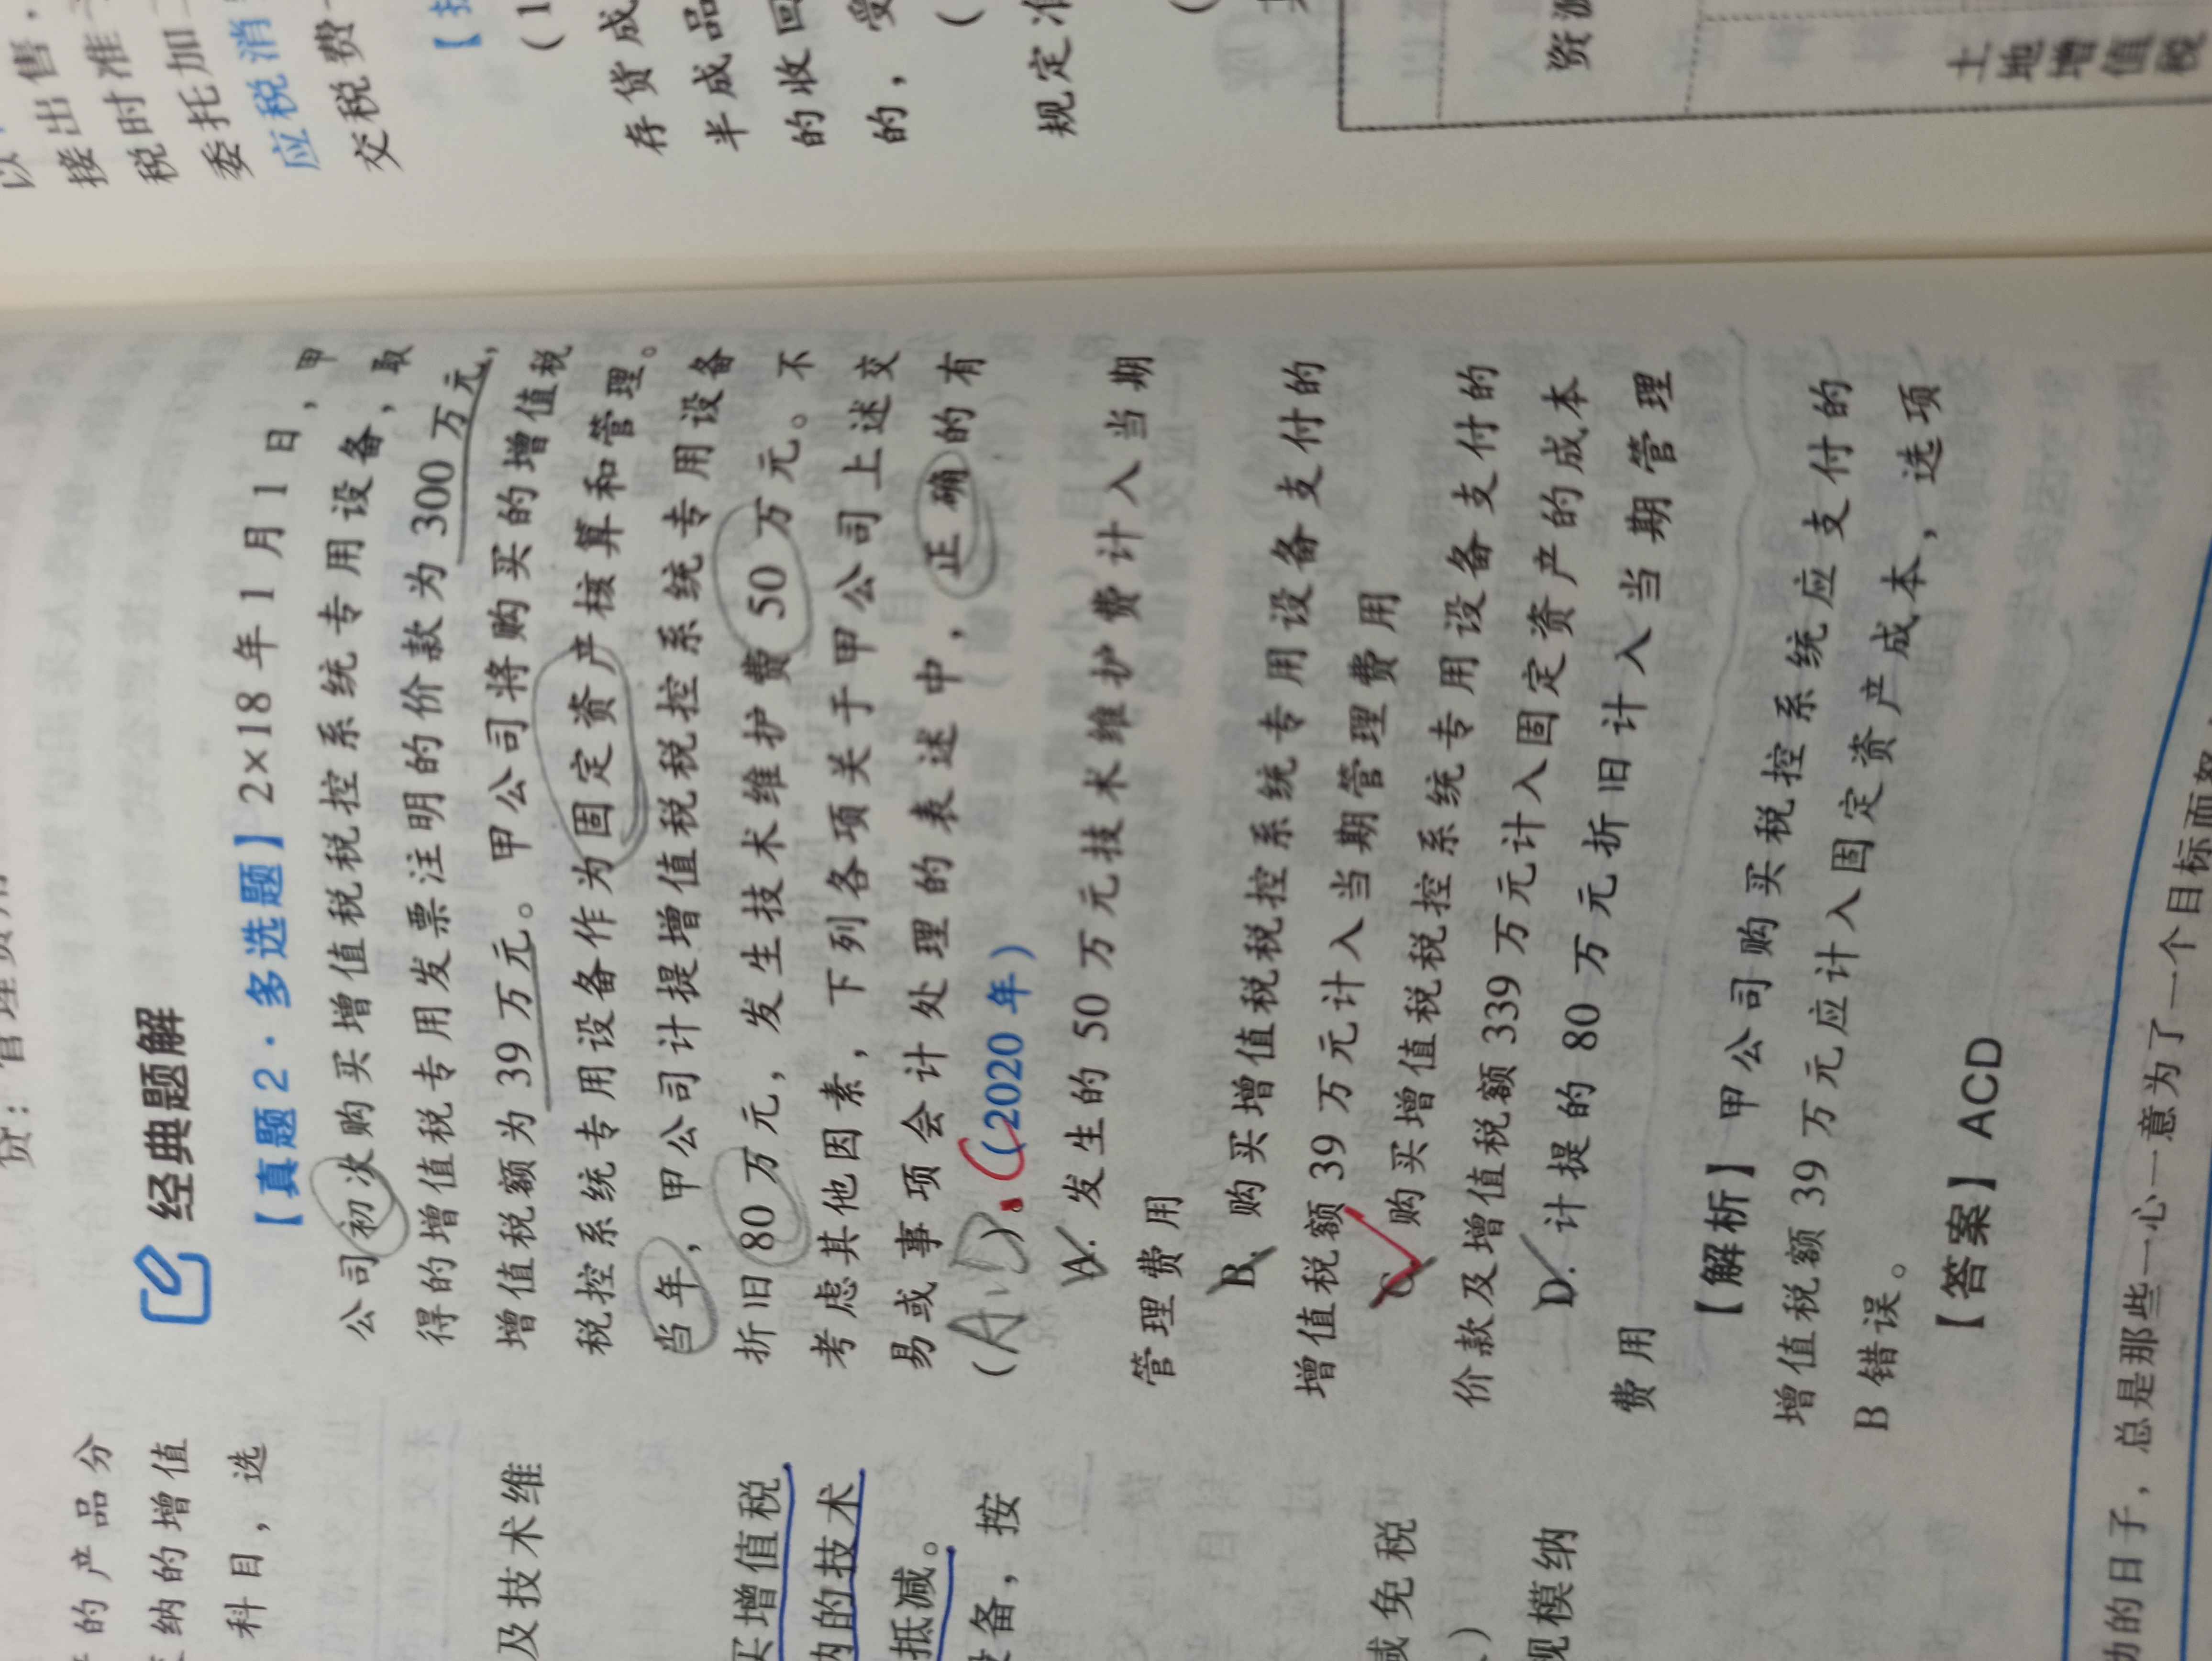 的产品分
纳的增值
科目，选
及技术维
买增值税
内的技术
抵减。
备，按
减免税
）
规模纳
经典题解
【真题2·多选题】2×18年1月1日，甲
公司初次购买增值税税控系统专用设备，取
得的增值税专用发票注明的价款为300万元，
增值税额为39万元。甲公司将购买的增值税
税控系统专用设备作为固定资产核算和管理。
当年，甲公司计提增值税税控系统专用设备
折旧80万元，发生技术维护费50万元。不
考虑其他因素，下列各项关于甲公司上述交
易或事项会计处理的表述中，正确的有
（AD）。（2020年）
A. 发生的50万元技术维护费计入当期
管理费用
B. 购买增值税税控系统专用设备支付的
增值税额39万元计入当期管理费用
C. 购买增值税税控系统专用设备支付的
价款及增值税额339万元计入固定资产的成本
D. 计提的80万元折旧计入当期管理
费用
【解析】甲公司购买税控系统应支付的
增值税额39万元应计入固定资产成本，选项
B错误。
【答案】ACD
的日子，总是那些一心一意为了一个目标而努
以
接出售，
税时准
委托加工
应税消
交税费
（1
存货成
半成品
的收回
的，受
（
规定准
资源
土地增值税